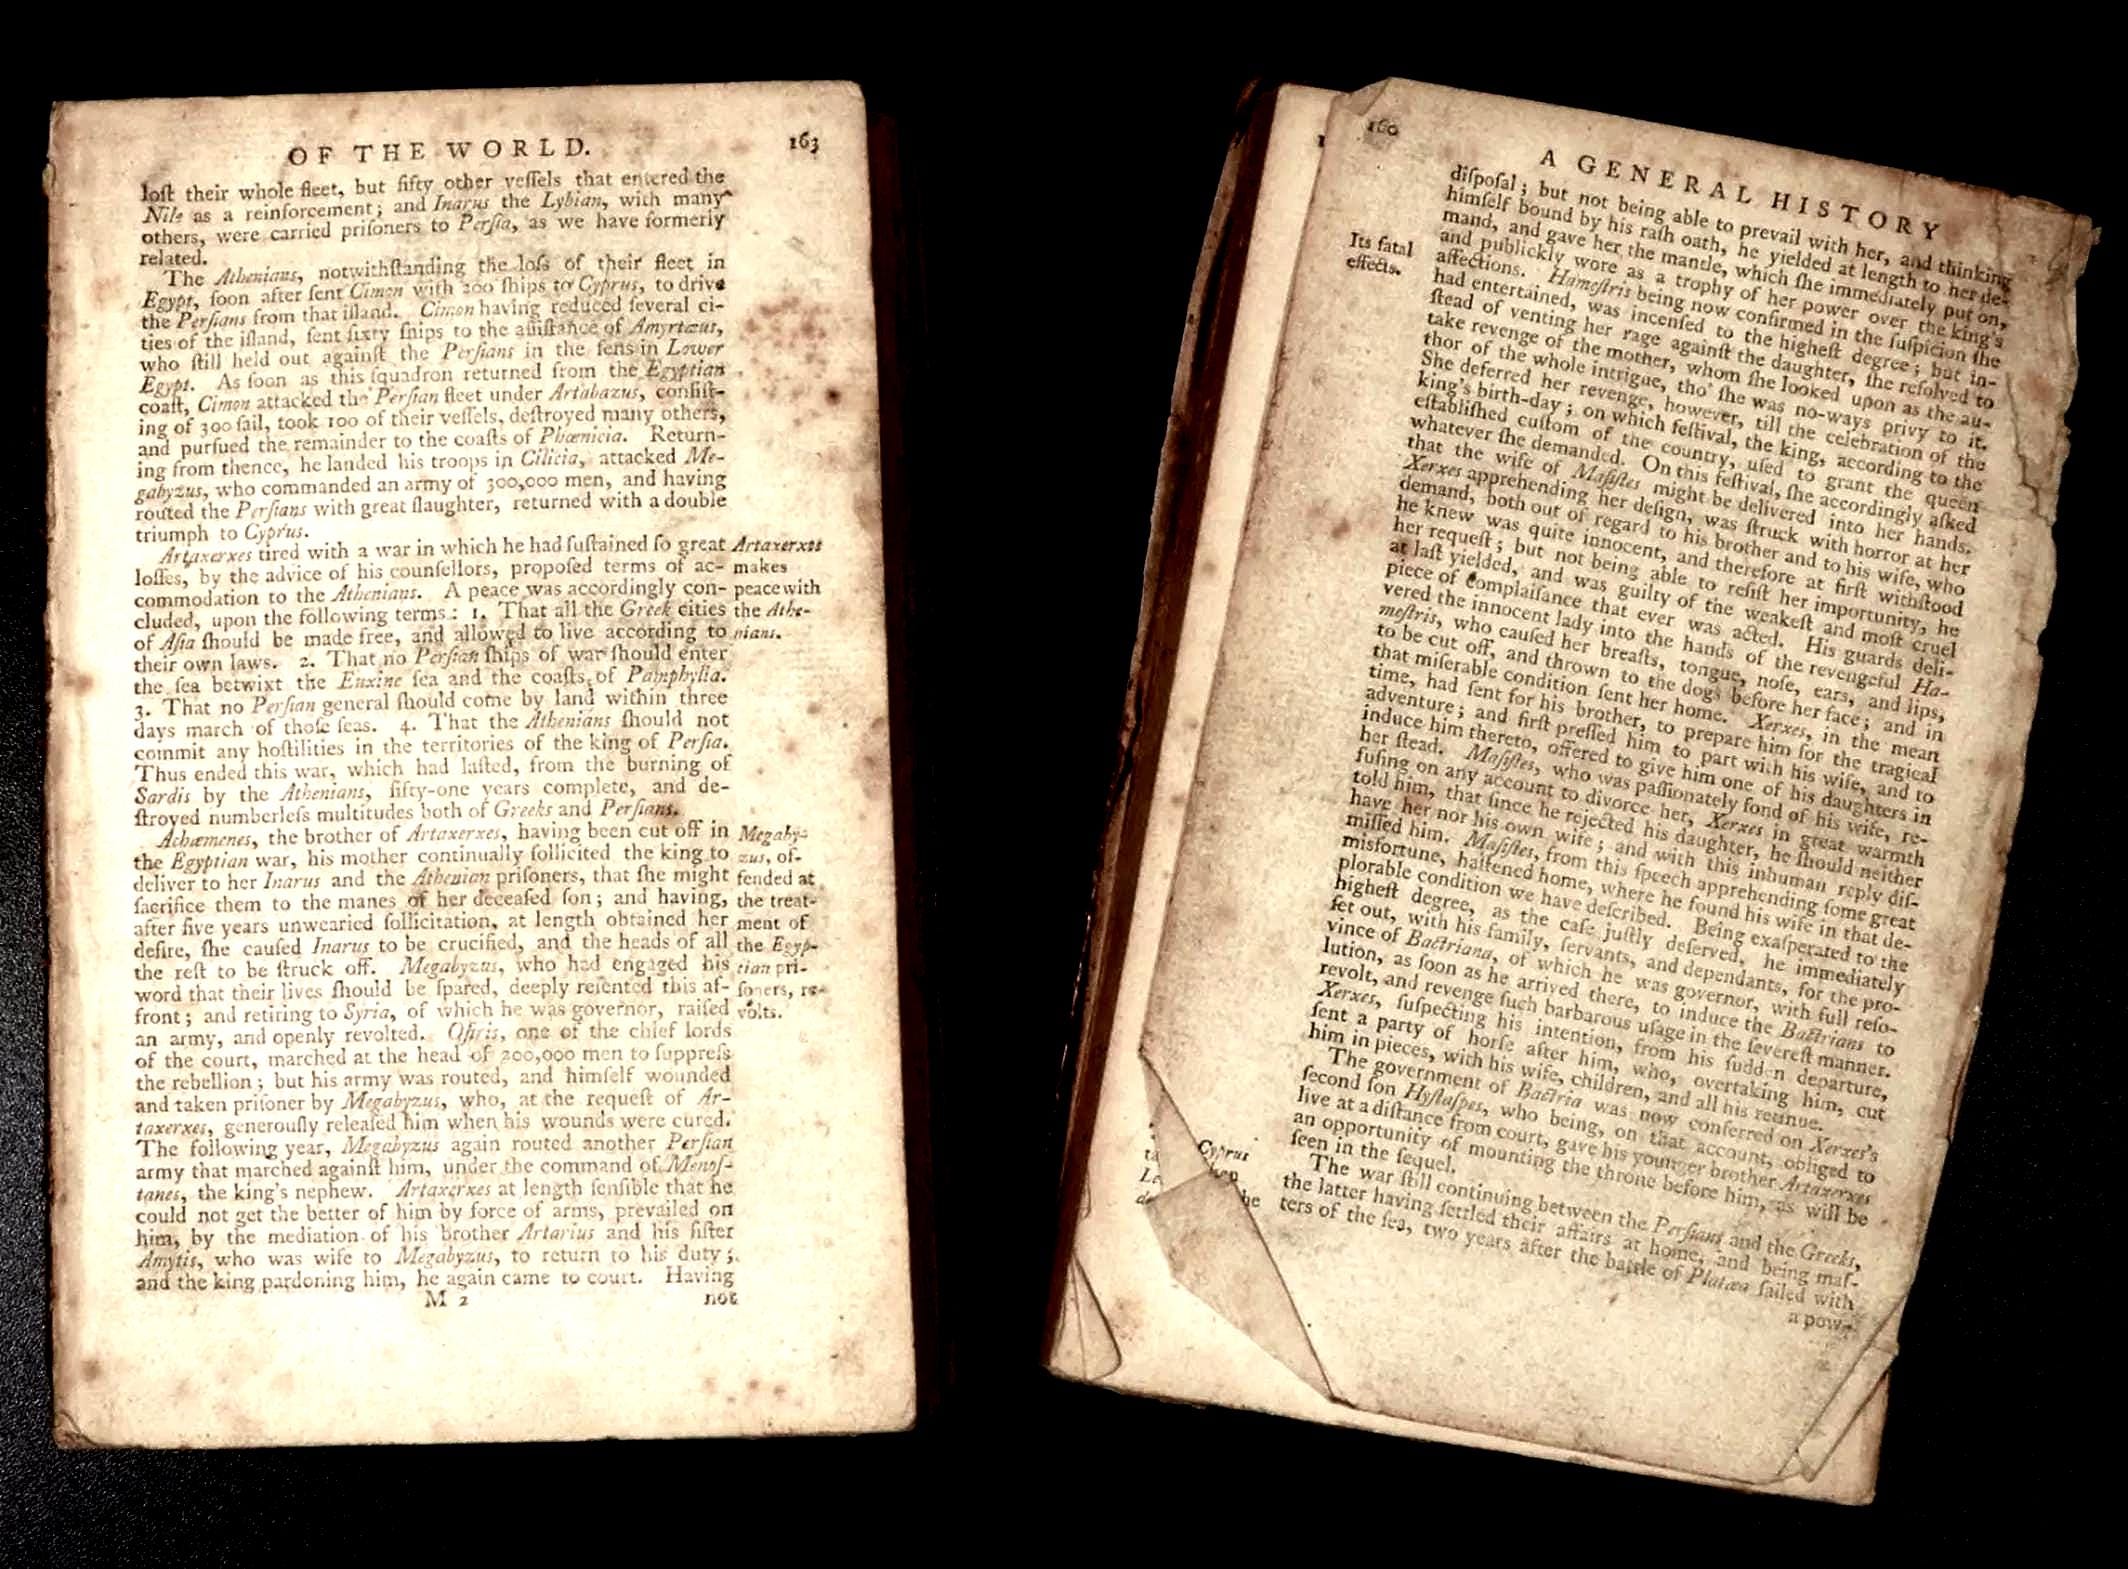 OF THE WORLD. 163
loſt their whole fleet, but fifty other veſſels that entered the
Nile as a reinforcement; and Inarus the Lybian, with many
others, were carried priſoners to Perſia, as we have formerly
related.
The Athenians, notwithſtanding the loſs of their fleet in
Egypt, ſoon after ſent Cimon with 200 ſhips to Cyprus, to drive
the Perſians from that iſland. Cimon having reduced ſeveral ci-
ties of the iſland, ſent ſixty ſhips to the aſſiſtance of Amyrtæus,
who ſtill held out againſt the Perſians in the fens in Lower
Egypt. As ſoon as this ſquadron returned from the Egyptian
coaſt, Cimon attacked the Perſian fleet under Artabazus, conſiſt-
ing of 300 ſail, took 100 of their veſſels, deſtroyed many others,
and purſued the remainder to the coaſts of Phœnicia. Return-
ing from thence, he landed his troops in Cilicia, attacked Me-
gabyzus, who commanded an army of 300,000 men, and having
routed the Perſians with great ſlaughter, returned with a double
triumph to Cyprus.
Artaxerxes tired with a war in which he had ſuſtained ſo great
loſſes, by the advice of his counſellors, propoſed terms of ac-
commodation to the Athenians. A peace was accordingly con-
cluded, upon the following terms: 1. That all the Greek cities
of Aſia ſhould be made free, and allowed to live according to
their own laws. 2. That no Perſian ſhips of war ſhould enter
the ſea betwixt the Euxine ſea and the coaſts of Pamphylia.
3. That no Perſian general ſhould come by land within three
days march of thoſe ſeas. 4. That the Athenians ſhould not
commit any hoſtilities in the territories of the king of Perſia.
Thus ended this war, which had laſted, from the burning of
Sardis by the Athenians, fifty-one years complete, and de-
ſtroyed numberleſs multitudes both of Greeks and Perſians.
Achæmenes, the brother of Artaxerxes, having been cut off in
the Egyptian war, his mother continually ſollicited the king to
deliver to her Inarus and the Athenian priſoners, that ſhe might
ſacrifice them to the manes of her deceaſed ſon; and having,
after five years unwearied ſollicitation, at length obtained her
deſire, ſhe cauſed Inarus to be crucified, and the heads of all
the reſt to be ſtruck off. Megabyzus, who had engaged his
word that their lives ſhould be ſpared, deeply reſented this af-
front; and retiring to Syria, of which he was governor, raiſed
an army, and openly revolted. Oſiris, one of the chief lords
of the court, marched at the head of 200,000 men to ſuppreſs
the rebellion; but his army was routed, and himſelf wounded
and taken priſoner by Megabyzus, who, at the requeſt of Ar-
taxerxes, generouſly releaſed him when his wounds were cured.
The following year, Megabyzus again routed another Perſian
army that marched againſt him, under the command of Menoſ-
tanes, the king's nephew. Artaxerxes at length ſenſible that he
could not get the better of him by force of arms, prevailed on
him, by the mediation of his brother Artarius and his ſiſter
Amytis, who was wife to Megabyzus, to return to his duty;
and the king pardoning him, he again came to court. Having
M 2 not
Artaxerxes
makes
peace with
the Athe-
nians.
Megaby-
zus, of-
fended at
the treat-
ment of
the Egyp-
tian pri-
ſoners, re-
volts.
160
A GENERAL HISTORY
diſpoſal; but not being able to prevail with her, and thinking
himſelf bound by his raſh oath, he yielded at length to her de-
mand, and gave her the mantle, which ſhe immediately put on,
and publickly wore as a trophy of her power over the king's
affections. Hameſtris being now confirmed in the ſuſpicion ſhe
had entertained, was incenſed to the higheſt degree; but in-
ſtead of venting her rage againſt the daughter, ſhe reſolved to
take revenge of the mother, whom ſhe looked upon as the au-
thor of the whole intrigue, tho' ſhe was no-ways privy to it.
She deferred her revenge, however, till the celebration of the
king's birth-day; on which feſtival, the king, according to the
eſtabliſhed cuſtom of the country, uſed to grant the queen
whatever ſhe demanded. On this feſtival, ſhe accordingly aſked
that the wife of Maſiſtes might be delivered into her hands.
Xerxes apprehending her deſign, was ſtruck with horror at her
demand, both out of regard to his brother and to his wife, who
he knew was quite innocent, and therefore at firſt withſtood
her requeſt; but not being able to reſiſt her importunity, he
at laſt yielded, and was guilty of the weakeſt and moſt cruel
piece of complaiſance that ever was acted. His guards deli-
vered the innocent lady into the hands of the revengeful Ha-
meſtris, who cauſed her breaſts, tongue, noſe, ears, and lips,
to be cut off, and thrown to the dogs before her face; and in
that miſerable condition ſent her home. Xerxes, in the mean
time, had ſent for his brother, to prepare him for the tragical
adventure; and firſt preſſed him to part with his wife, and to
induce him thereto, offered to give him one of his daughters in
her ſtead. Maſiſtes, who was paſſionately fond of his wife, re-
fuſing on any account to divorce her, Xerxes in great warmth
told him, that ſince he rejected his daughter, he ſhould neither
have her nor his own wife; and with this inhuman reply diſ-
miſſed him. Maſiſtes, from this ſpeech apprehending ſome great
misfortune, haſtened home, where he found his wife in that de-
plorable condition we have deſcribed. Being exaſperated to the
higheſt degree, as the caſe juſtly deſerved, he immediately
ſet out, with his family, ſervants, and dependants, for the pro-
vince of Bactriana, of which he was governor, with full reſo-
lution, as ſoon as he arrived there, to induce the Bactrians to
revolt, and revenge ſuch barbarous uſage in the ſevereſt manner.
Xerxes, ſuſpecting his intention, from his ſudden departure,
ſent a party of horſe after him, who, overtaking him, cut
him in pieces, with his wife, children, and all his retinue.
The government of Bactria was now conferred on Xerxes's
ſecond ſon Hyſtaſpes, who being, on that account, obliged to
live at a diſtance from court, gave his younger brother Artaxerxes
an opportunity of mounting the throne before him, as will be
ſeen in the ſequel.
The war ſtill continuing between the Perſians and the Greeks,
the latter having ſettled their affairs at home, and being maſ-
ters of the ſea, two years after the battle of Platæa ſailed with
a pow-
Its fatal
effects.
Cyprus